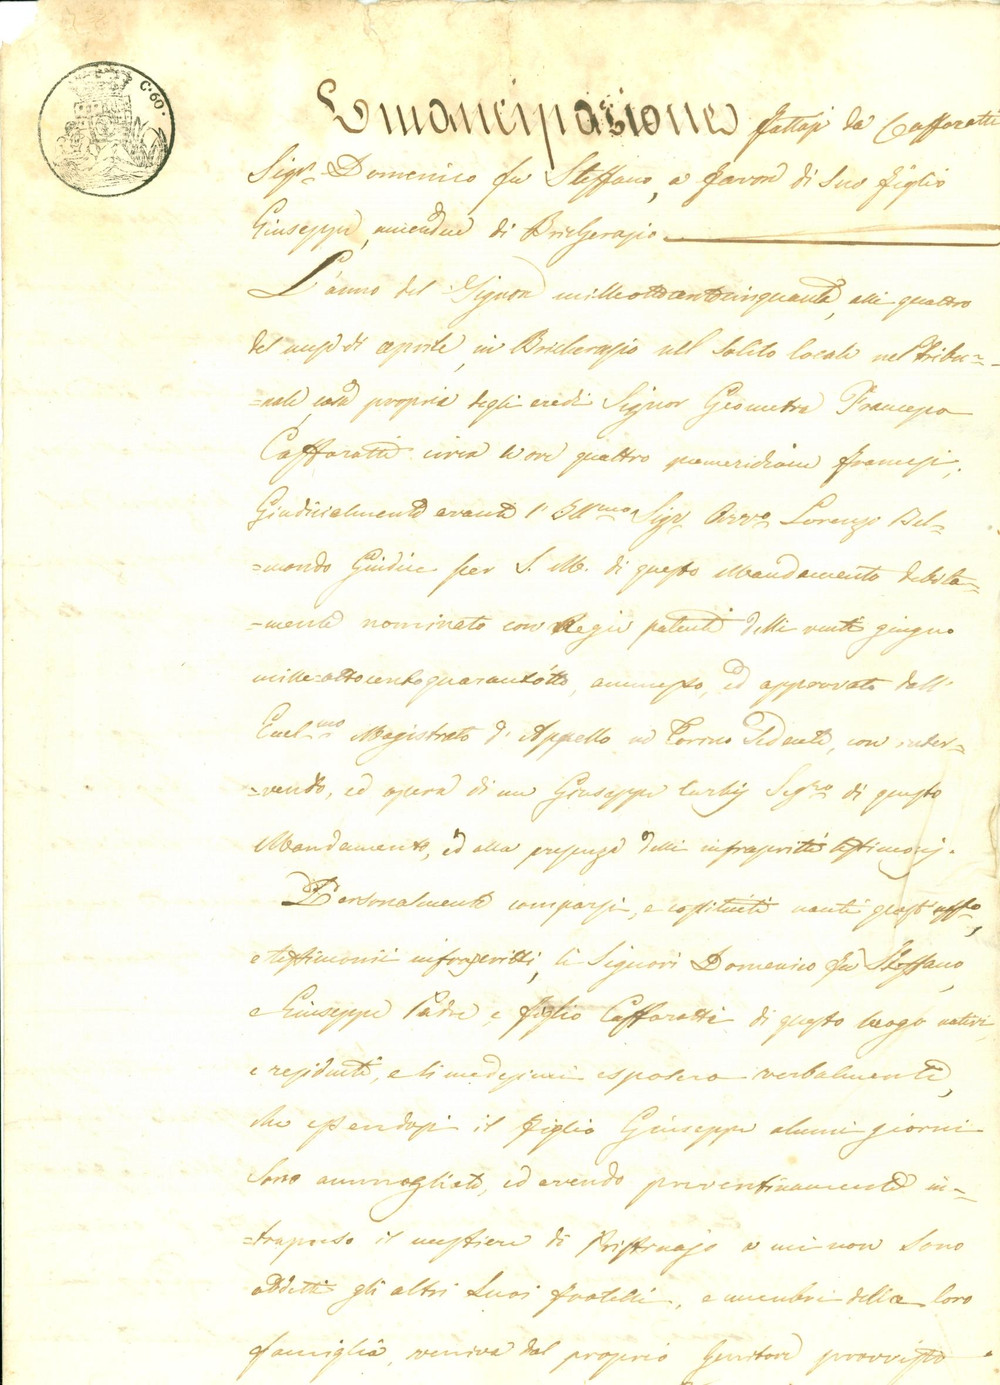 C. 60.
Emancipazione fattasi da Caffaratti
Sigr. Domenico fu Steffano, a favore di suo figlio
Giuseppe, amendue di Bricherasio.
L'anno del Signore milleottocentocinquanta, alli quattro
del mese di aprile, in Bricherasio nel solito locale nel Tribu=
=nale, casa propria degli eredi Signor Geometra Francesco
Caffaratti circa le ore quattro pomeridiane francesi;
Giudicialmente avanti l'Ill.mo Sigr. Avvo. Lorenzo Bel=
=mondo Giudice per S. M. di questo Mandamento debita=
=mente nominato con Regie patenti delli venti giugno
mille=ottocentoquarantotto, ammesso, ed approvato dall'
Eccel.mo Magistrato d'Appello in Torino sedente, con inter=
=vento, ed opera di me Giuseppe Segro. di questo
Mandamento, ed alla presenza delli infrascritti testimonj.
Personalmente comparsi, e costituiti nanti quest' uffo.,
e testimonii infrascritti, li Signori Domenico fu Steffano,
e Giuseppe Padre, e figlio Caffaratti di questo luogo nativi
e residenti, e li medesimi esposero verbalmente,
che essendosi il figlio Giuseppe alcuni giorni
sono ammogliato, ed avendo preventivamente in=
=trapreso il mestiere di Pristinajo a cui non sono
addetti gli altri suoi fratelli, e membri della loro
famiglia, veniva dal proprio Genitore provvisto